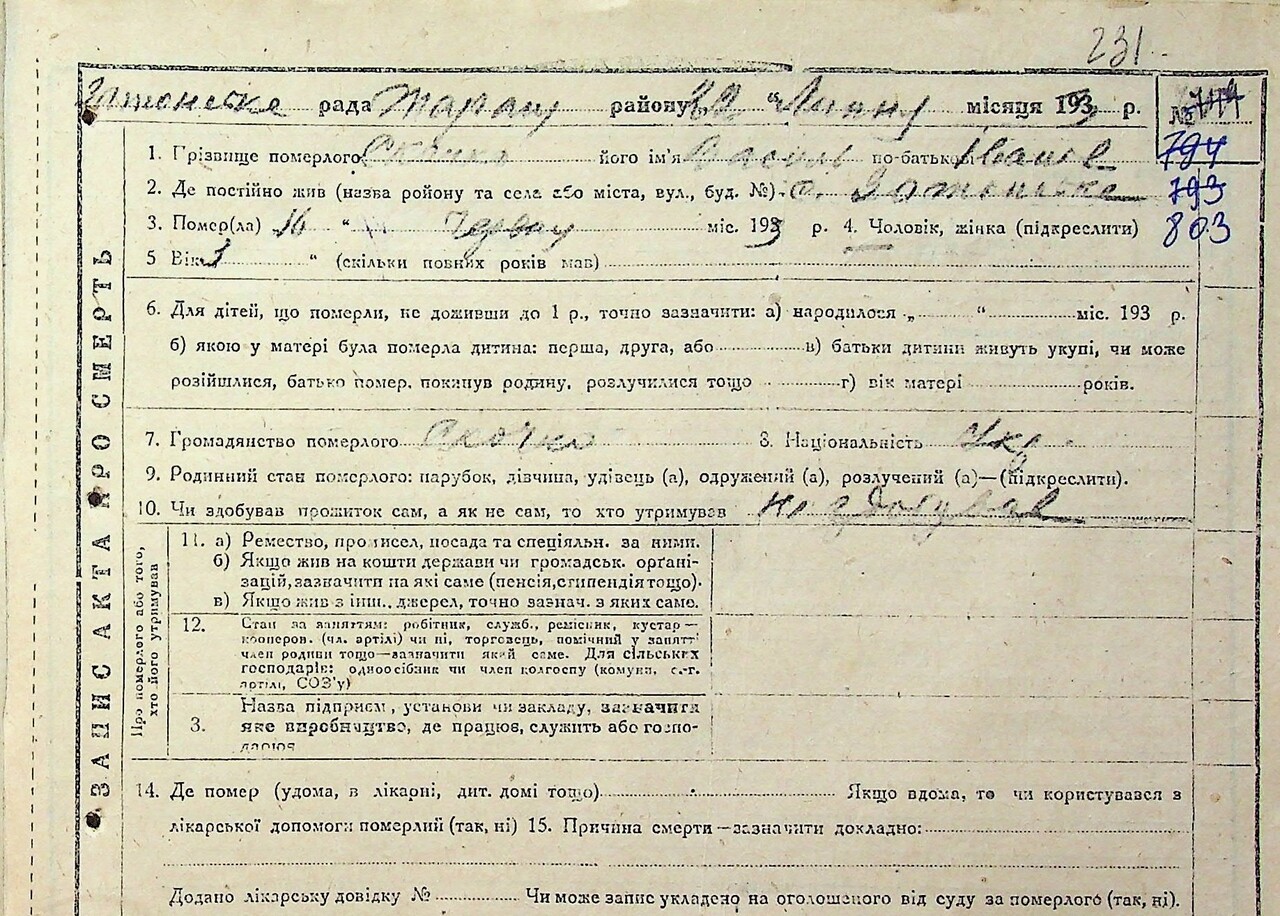 231
рада району 22 "Липну місяця 1933 р. №
1. Грізвище померлого його ім'я Василь по-батькові Іванів
794
2. Де постійно жив (назва ройону та села або міста, вул., буд. №) с.
793
3. Помер(ла) 16 " міс. 1933 р. 4. Чоловік, жінка (підкреслити)
803
5 Вік 3 " (скільки повних років мав)
6. Для дітей, що померли, не доживши до 1 р., точно зазначити: а) народилося „ " міс. 193 р.
б) якою у матері була померла дитина: перша, друга, або в) батьки дитини живуть укупі, чи може
розійшлися, батько помер, покинув родину, розлучилися тощо г) вік матері років.
7. Громадянство померлого 8. Національність Укр
9. Родинний стан померлого: парубок, дівчина, удівець (а), одружений (а), розлучений (а)—(підкреслити).
10. Чи здобував прожиток сам, а як не сам, то хто утримував не здобував
ЗАПИС АКТА ПРО СМЕРТЬ
Про померлого або того,
хто його утримував
11. а) Ремество, промисел, посада та спеціяльн. за ними.
б) Якщо жив на кошти держави чи громадськ. орґані-
зацій, зазначити на які саме (пенсія, стипендія тощо).
в) Якщо жив з інш.. джерел, точно зазнач. з яких саме.
12. Стан за заняттям: робітник, служб., ремісник, кустар—
кооперов. (чл. артілі) чи ні, торговець, помічний у занятті
член родини тощо—зазначити який саме. Для сільських
господарів: одноосібник чи член колгоспу (комуни, с.-г.
артілі, СОЗ'у)
Назва підприєм, установи чи закладу, зазначити
3. яке виробництво, де працює, служить або госпо-
дарює
14. Де помер (удома, в лікарні, дит. домі тощо) Якщо вдома, то чи користувався з
лікарської допомоги померлий (так, ні) 15. Причина смерти—зазначити докладно:
Додано лікарську довідку № Чи може запис укладено на оголошеного від суду за померлого (так, ні).